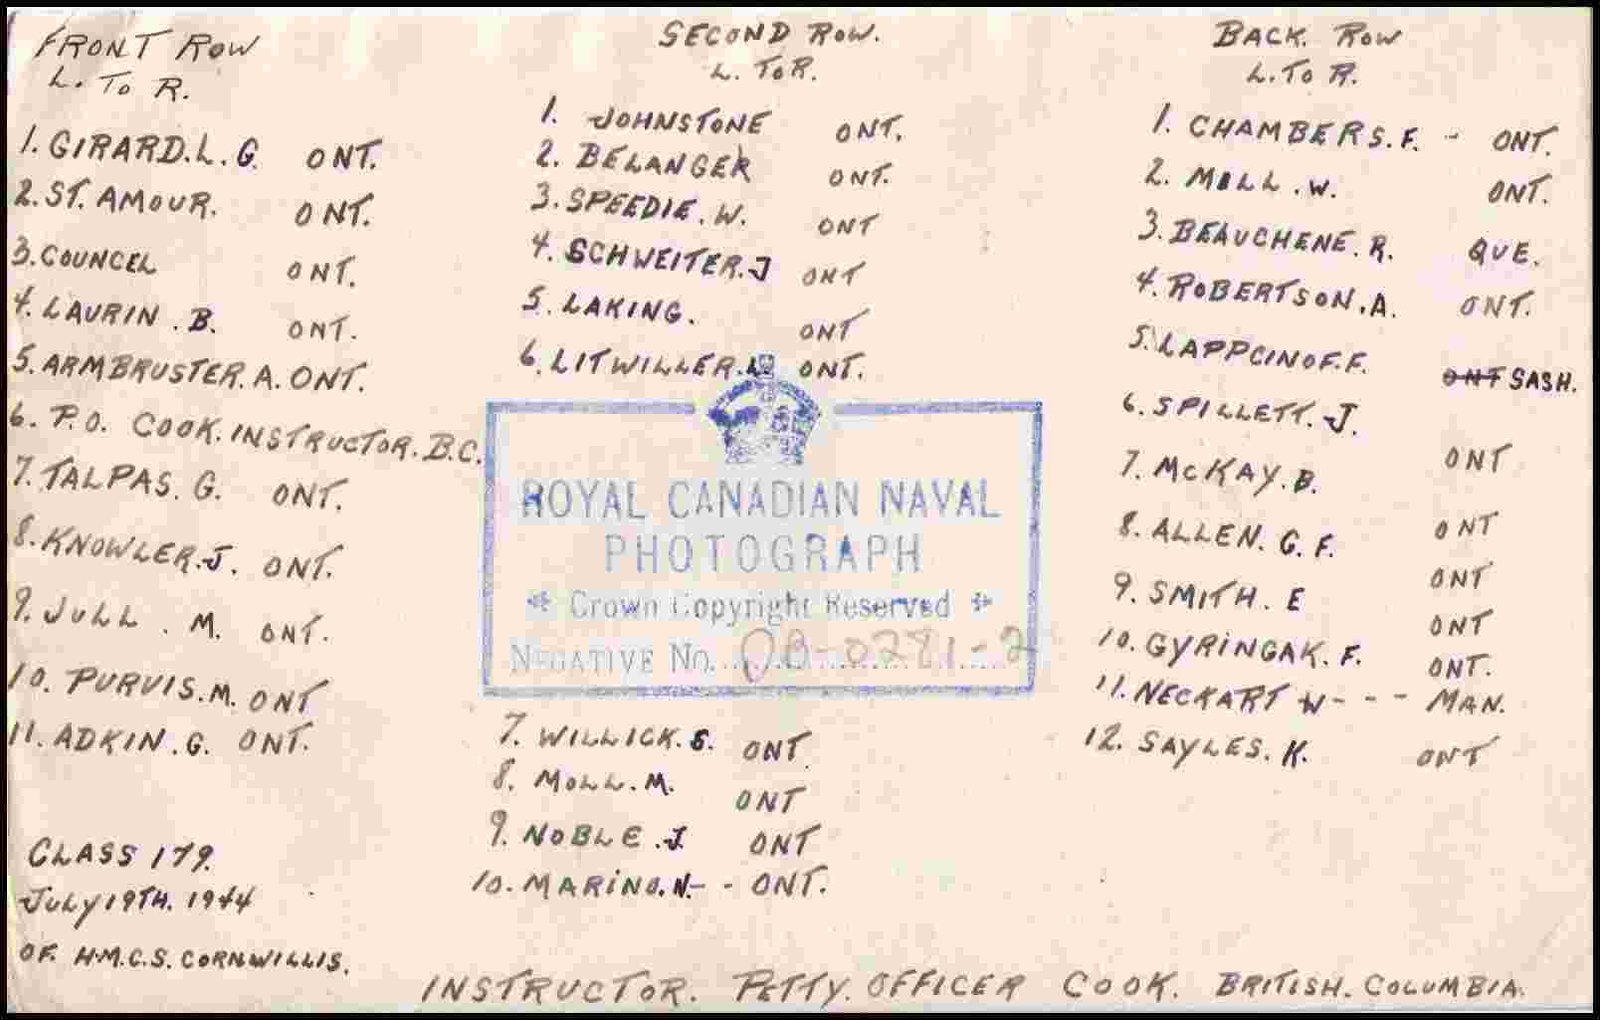 FRONT ROW
L. TO R.
1. GIRARD. L. G. ONT.
2. ST. AMOUR. ONT.
3. COUNCEL ONT.
4. LAURIN . B. ONT.
5. ARMBRUSTER. A. ONT.
6. P.O. COOK. INSTRUCTOR. B.C.
7. TALPAS. G. ONT.
8. KNOWLER. J. ONT.
9. JULL . M. ONT.
10. PURVIS. M. ONT
11. ADKIN. G. ONT.
CLASS 179.
JULY 19TH. 1944
OF. H.M.C.S. CORNWILLIS.
SECOND ROW.
L. TO R.
1. JOHNSTONE ONT.
2. BELANGER ONT.
3. SPEEDIE. W. ONT
4. SCHWEITER. J ONT
5. LAKING. ONT
6. LITWILLER. L. ONT.
ROYAL CANADIAN NAVAL
PHOTOGRAPH
Crown Copyright Reserved
NEGATIVE No. DB-0281-2
7. WILLICK. S. ONT
8. MOLL. M. ONT
9. NOBLE. J. ONT
10. MARINO. N. - - ONT.
BACK. ROW
L. TO R.
1. CHAMBERS. F. - ONT.
2. MILL. W. ONT.
3. BEAUCHENE. R. QUE.
4. ROBERTSON. A. ONT.
5. LAPPCINOF. F. ONT SASH.
6. SPILLETT. J. ONT
7. McKAY. B. ONT
8. ALLEN. G. F. ONT
9. SMITH. E ONT
10. GYRINGAK. F. ONT.
11. NECKART W - - - MAN.
12. SAYLES. K. ONT
INSTRUCTOR. PETTY. OFFICER COOK. BRITISH. COLUMBIA.